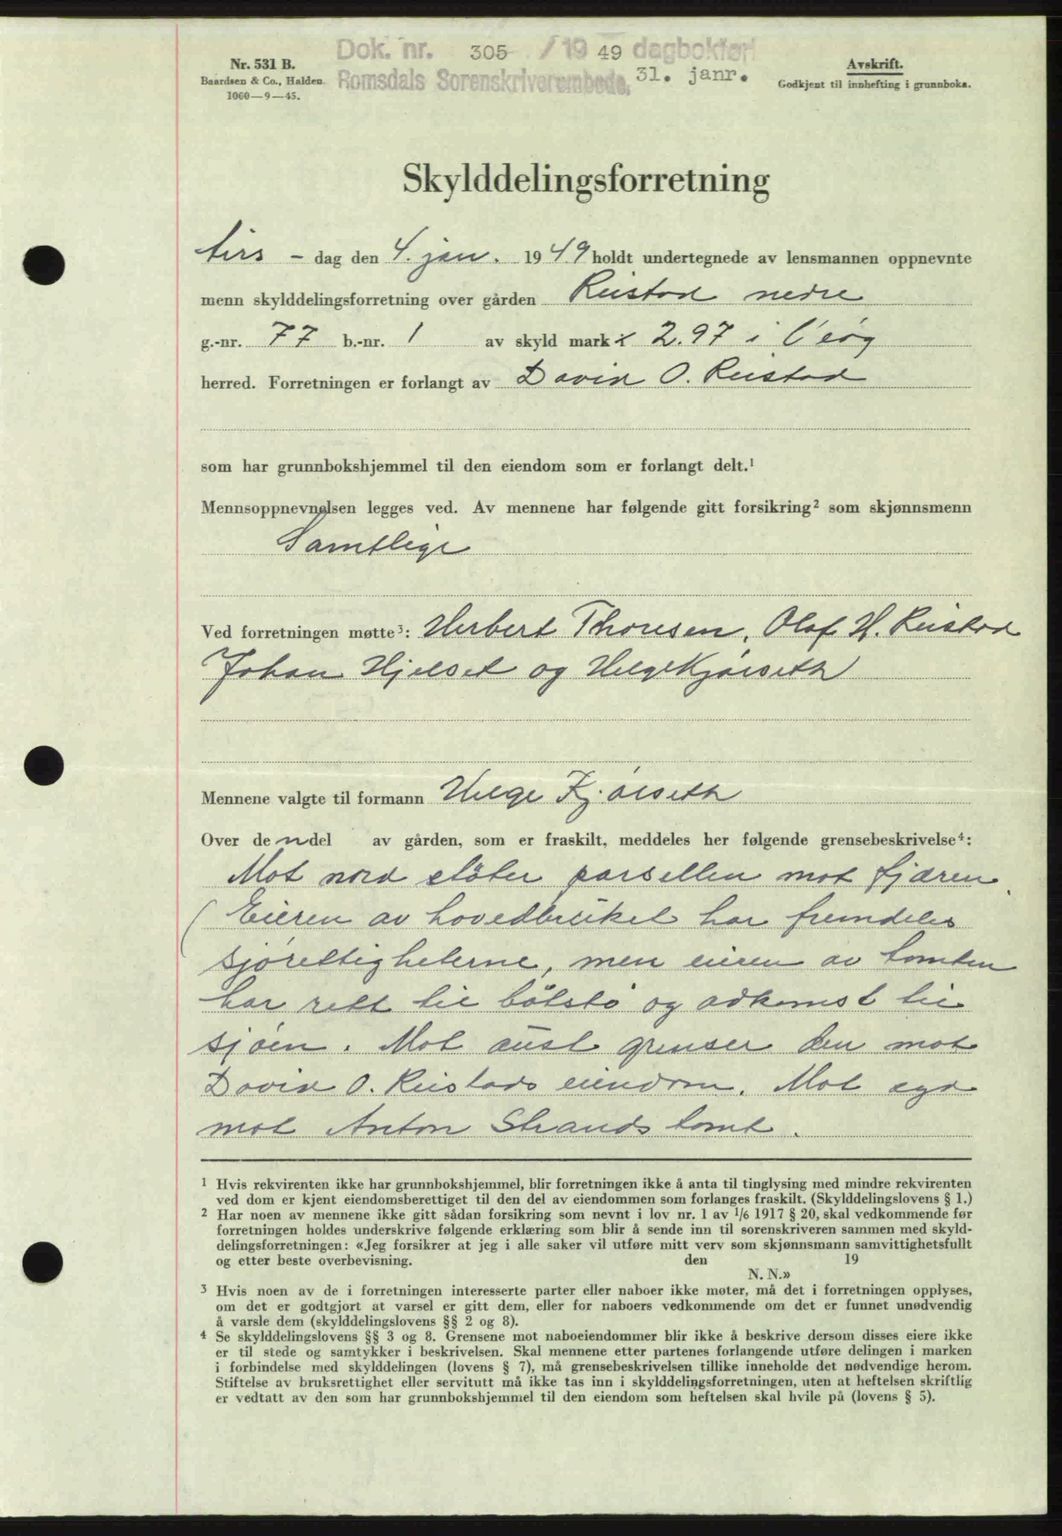 Dok. nr. 305 / 19 49 dagbokført
Romsdals Sorenskriverembede, 31. janr.
Nr. 531 B.
Baardsen & Co., Halden.
1060—9—45.
Avskrift.
Godkjent til innhefting i grunnboka.
Skylddelingsforretning
tirs - dag den 4. jan. 1949 holdt undertegnede av lensmannen oppnevnte
menn skylddelingsforretning over gården Reistad nedre
g.-nr. 77 b.-nr. 1 av skyld mark 2.97 i
herred. Forretningen er forlangt av David O. Reistad
som har grunnbokshjemmel til den eiendom som er forlangt delt.¹
Mennsoppnevnelsen legges ved. Av mennene har følgende gitt forsikring² som skjønnsmenn
Samtlige
Ved forretningen møtte³: Herbert Thoresen, Olaf H. Reistad
Johan Hjelset og Helge Kjørseth
Mennene valgte til formann Helge Kjørseth
Over den del av gården, som er fraskilt, meddeles her følgende grensebeskrivelse⁴:
Mot nord støter parsellen mot fjæren.
(Eieren av hovedbruket har fremdeles
sjørettigheterne, men eieren av tomten
har rett til båtstø og adkomst til
sjøen. Mot aust grenser den mot
David O. Reistads eiendom. Mot syd
mot Anton Strands tomt.
¹ Hvis rekvirenten ikke har grunnbokshjemmel, blir forretningen ikke å anta til tinglysing med mindre rekvirenten
ved dom er kjent eiendomsberettiget til den del av eiendommen som forlanges fraskilt. (Skylddelingslovens § 1.)
² Har noen av mennene ikke gitt sådan forsikring som nevnt i lov nr. 1 av 1/6 1917 § 20, skal vedkommende før
forretningen holdes underskrive følgende erklæring som blir å sende inn til sorenskriveren sammen med skyld-
delingsforretningen: «Jeg forsikrer at jeg i alle saker vil utføre mitt verv som skjønnsmann samvittighetsfullt
og etter beste overbevisning. den 19
N. N.»
³ Hvis noen av de i forretningen interesserte parter eller naboer ikke møter, må det i forretningen opplyses,
om det er godtgjort at varsel er gitt dem, eller for naboers vedkommende om det er funnet unødvendig
å varsle dem (skylddelingslovens §§ 2 og 8).
⁴ Se skylddelingslovens §§ 3 og 8. Grensene mot naboeiendommer blir ikke å beskrive dersom disses eiere ikke
er til stede og samtykker i beskrivelsen. Skal mennene etter partenes forlangende utføre delingen i marken
i forbindelse med skylddelingen (lovens § 7), må grensebeskrivelsen tillike inneholde det nødvendige herom.
Stiftelse av bruksrettighet eller servitutt må ikke tas inn i skylddelingsforretningen, uten at heftelsen skriftlig
er vedtatt av den som har grunnbokshjemmel til den eiendom som heftelsen skal hvile på (lovens § 5).